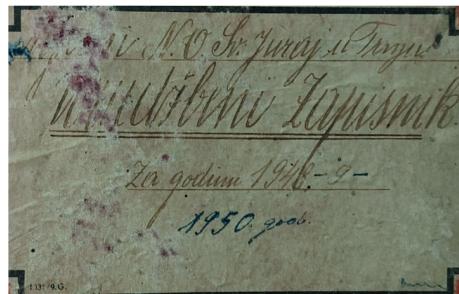 N.O Sv. Juraj u Trnju
Urudžbeni Zapisnik.
Za godinu 1948-9-
1950. god.